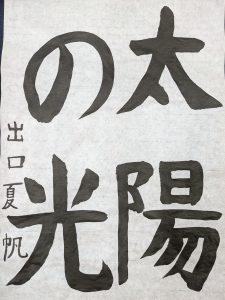 太陽
の光
出口夏帆